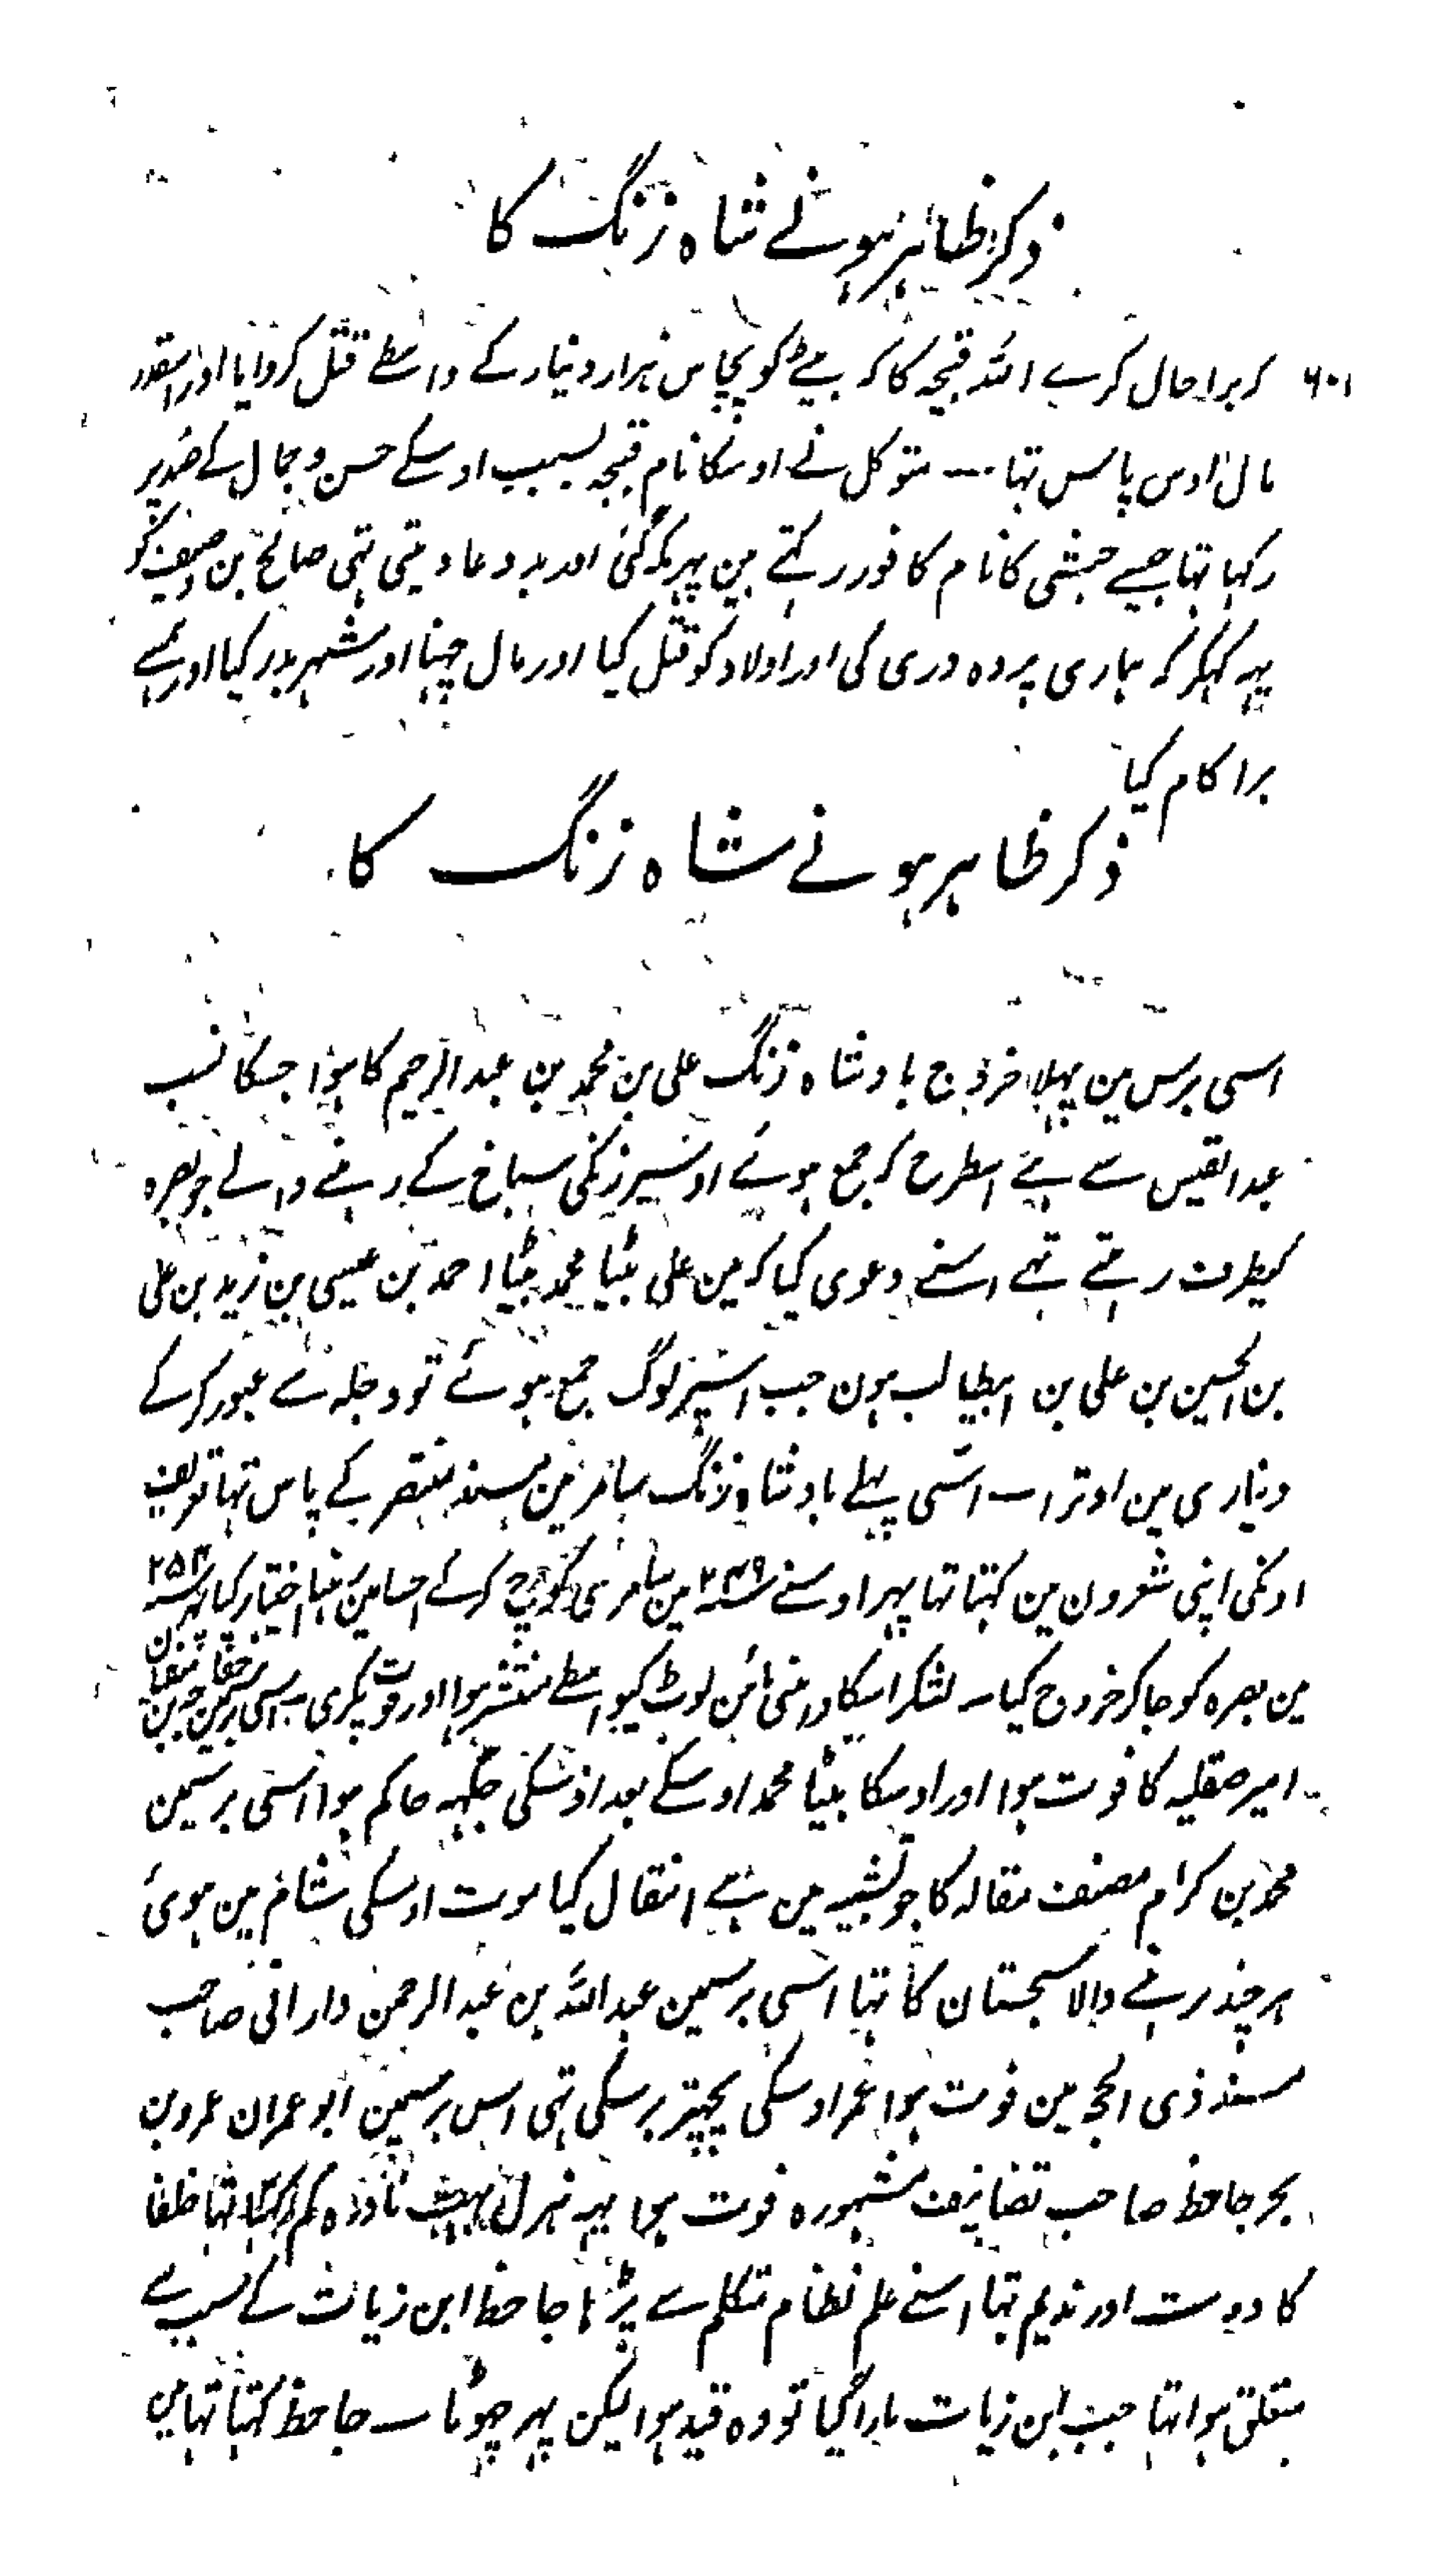 ذکر ظاہر ہونے شاہ زنگ کا
۶۰۱ کہ برا حال کرے اللہ قبیحہ کا کہ بیٹے کو پچاس ہزار دینار کے واسطے قتل کروایا اور اسقدر
مال اوس پاس تہا ۔۔ متوکل نے اوسکا نام قبیحہ بسبب اوسکے حسن و جمال کے ضد پر
رکہا تہا جیسے حبشی کا نام کافور رکہتے ہین پہر مکہ گئی اور بد دعا دیتی تہی صالح بن وصیف کو
یہہ کہکر کہ ہماری پردہ دری کی اور اولاد کو قتل کیا اور مال چہینا اور شہر بدر کیا اور ہمسے
برا کام کیا
ذکر ظاہر ہونے شاہ زنگ کا
اسی برس مین پہلا خروج بادشاہ زنگ علی بن محمد بن عبد الرحیم کا ہوا جسکا نسب
عبد القیس سے ہے اسطرح کہ جمع ہوئے اوسپر زنگی سباخ کے رہنے والے جو بصرہ
کیطرف رہتے تہے اسنے دعوی کیا کہ مین علی بیٹا محمد بیٹا احمد بن عیسی بن زید بن علی
بن الحسین بن علی بن ابیطالب ہون جب اسپر لوگ جمع ہوئے تو دجلہ سے عبور کر کے
دیناری مین اوترا ۔ اسی پہلے بادشاہ زنگ سامرہ مین منتصر کے پاس تہا تعریف
اونکی اپنی شعرون مین کہتا تہا پہر اوسنے سنہ ۲۴۹ مین سامری کوچ کر کے احسا مین رہنا اختیار کیا پہر سنہ ۲۵۴
مین بصرہ کو جا کر خروج کیا ۔ لشکر اسکا دہنی بائین لوٹ کیواسطے منتشر ہوا اور قوت پکڑی ۔ اسی برس مین خفاجہ بن سفیان
امیر صقلیہ کا فوت ہوا اور اوسکا بیٹا محمد اوسکے بعد اوسکی جگہہ حاکم ہوا اسی برسمین
محمد بن کرام مصنف مقالہ کا جو تشبیہ مین ہے انتقال کیا موت اوسکی شام مین ہوئی
ہر چند رہنے والا سجستان کا تہا اسی برسمین عبد اللہ بن عبد الرحمن دارانی صاحب
مسند ذی الحجہ مین فوت ہوا عمر اوسکی پچہتر برسکی تہی اس برسمین ابو عمران عمرو بن
بحر جاحظ صاحب تصانیف مشہورہ فوت ہوا یہہ ہزل بہت نادرہ کم کہتا تہا خلفا
کا دوست اور ندیم تہا اسنے علم نظام متکلم سے پڑہا جاحظ ابن زیات کے سبب سے
متعلق ہوا تہا جب ابن زیات مارا گیا تو وہ قید ہوا لیکن پہر چہوٹا ۔ جاحظ کہتا تہا مین